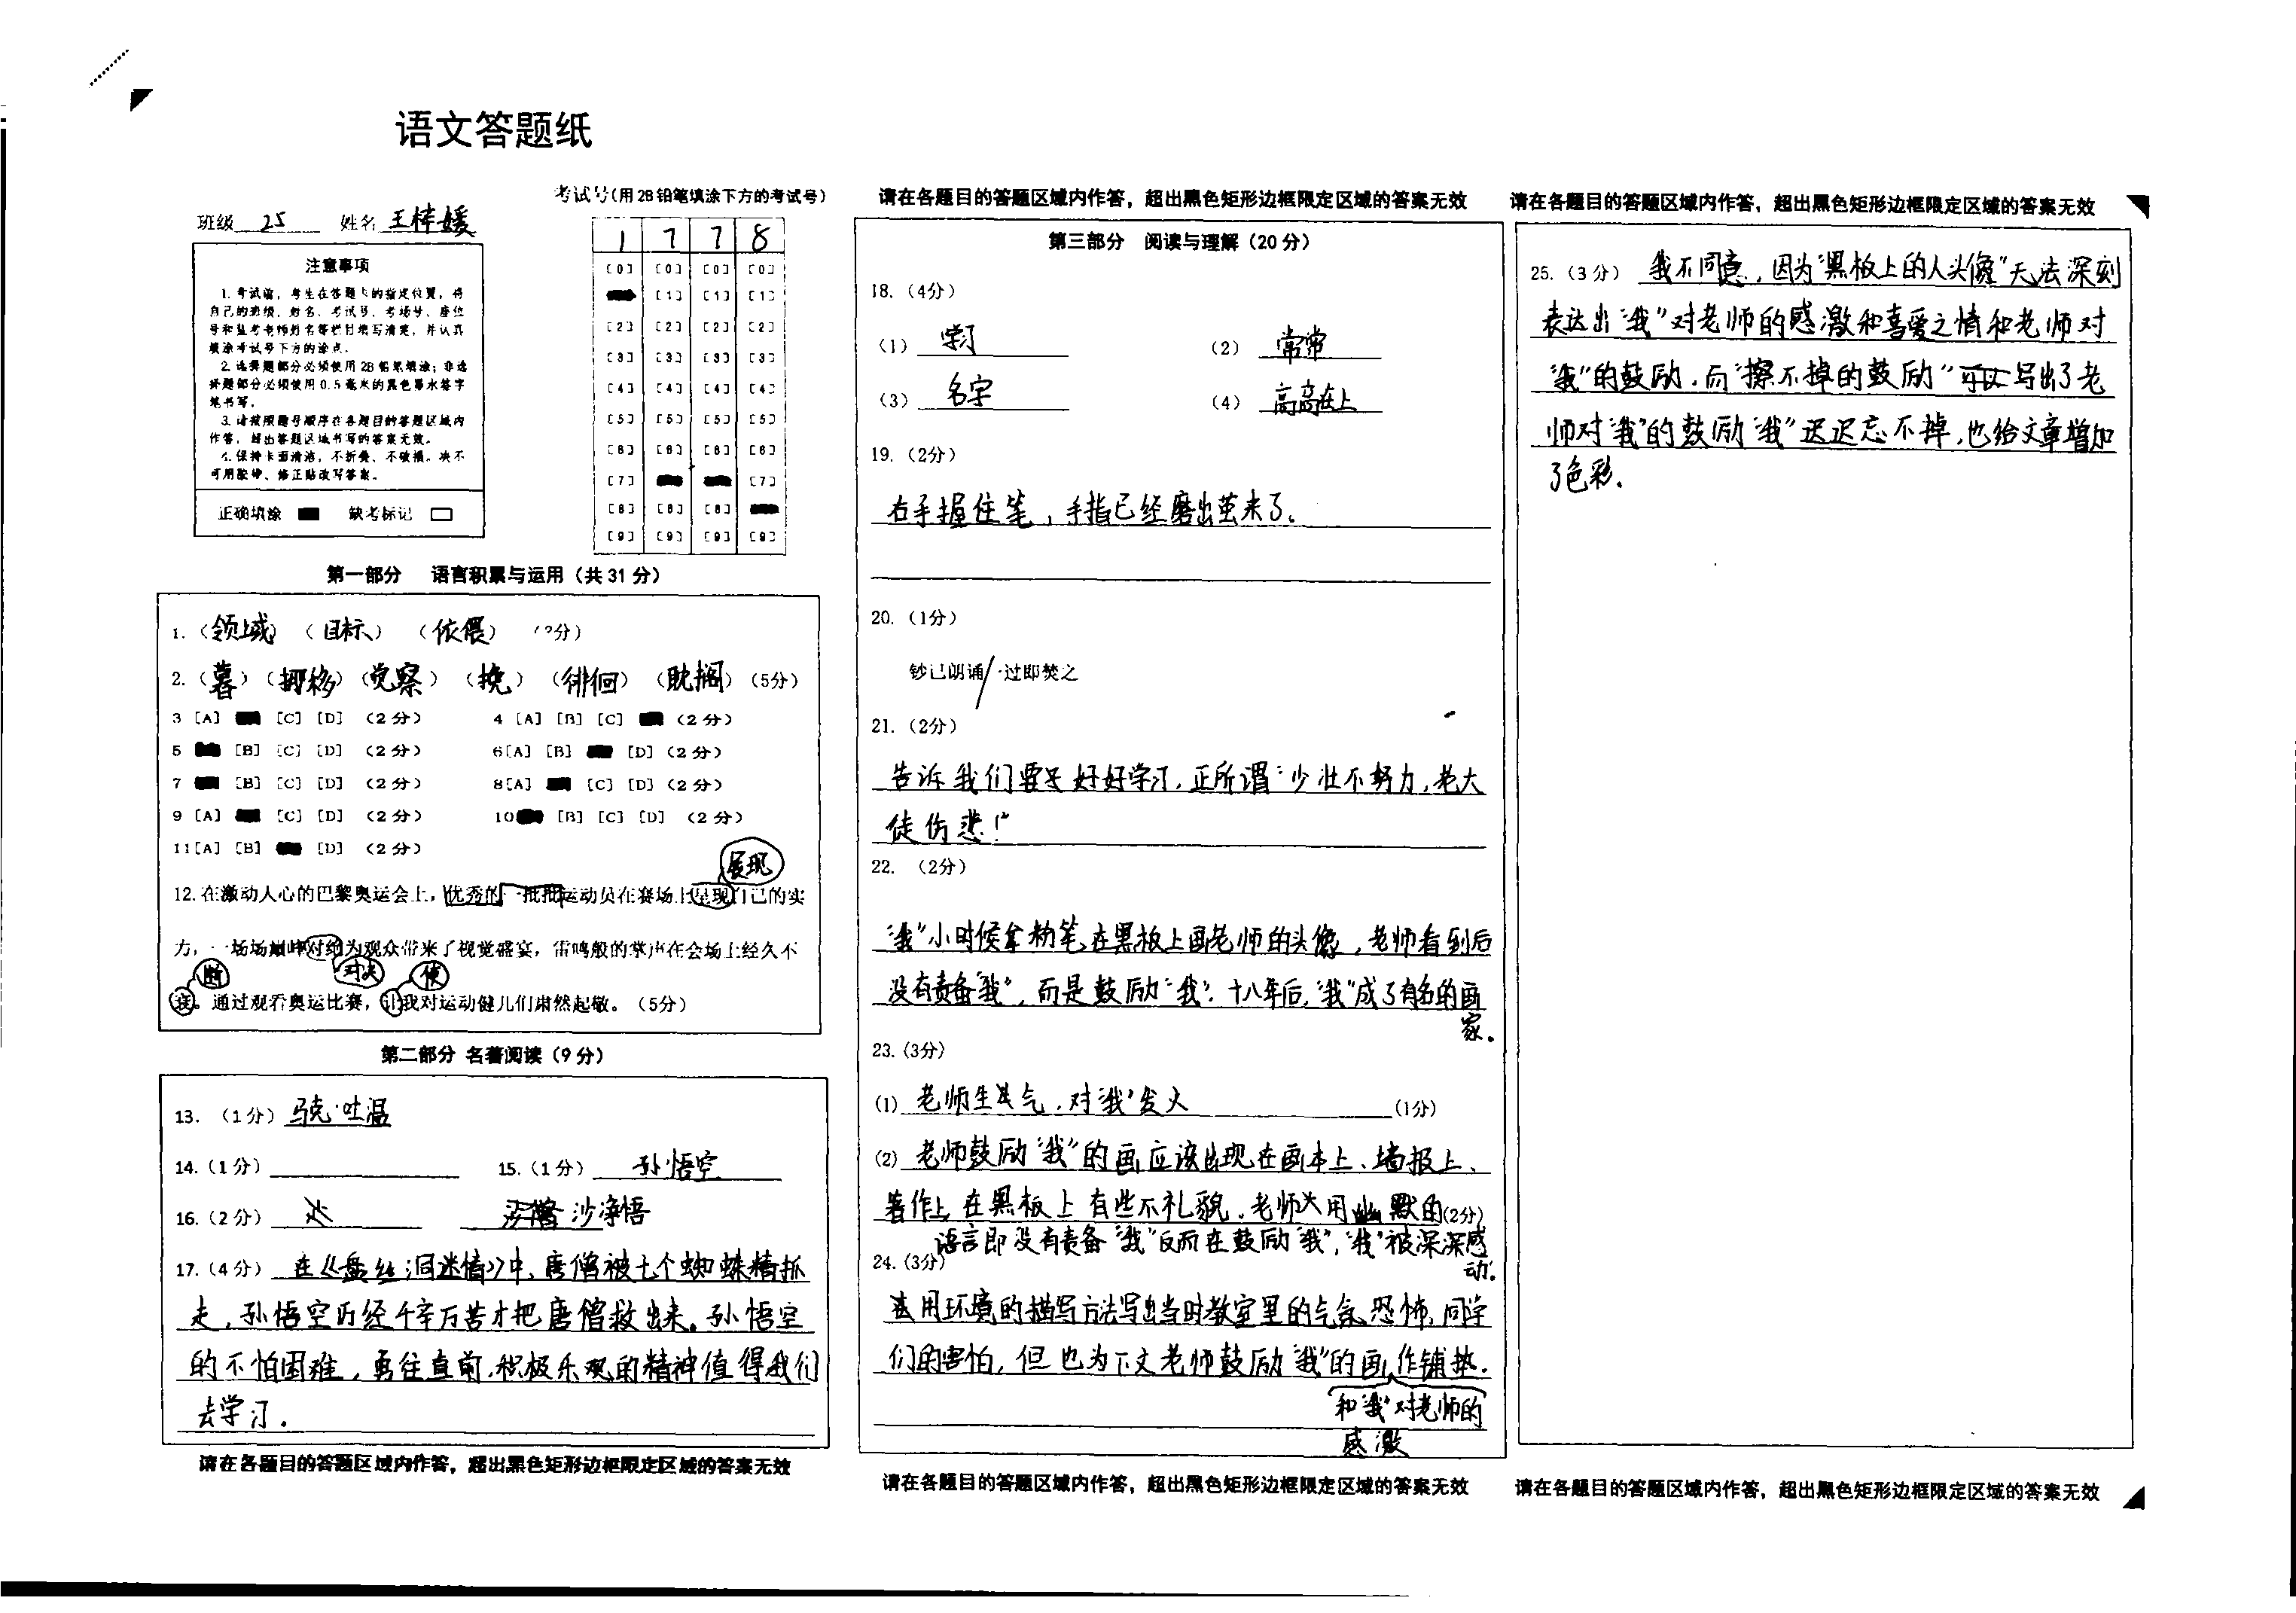 语文答题纸
考试号(用2B铅笔填涂下方的考试号)
班级 25 姓名 王梓媛
1 7 7 8
[0] [0] [0] [0]
[1] [1] [1]
[2] [2] [2] [2]
[3] [3] [3] [3]
[4] [4] [4] [4]
[5] [5] [5] [5]
[6] [6] [6] [6]
[7] [7]
[8] [8] [8]
[9] [9] [9] [9]
注意事项
1. 考试前，考生在答题卡的指定位置，将
自己的班级、姓名、考试号、考场号、座位
号和监考老师姓名等栏目填写清楚，并认真
填涂考试号下方的涂点。
2. 选择题部分必须使用 2B 铅笔填涂；非选
择题部分必须使用 0.5 毫米的黑色墨水签字
笔书写。
3. 请按照题号顺序在各题目的答题区域内
作答，超出答题区域书写的答案无效。
4. 保持卡面清洁，不折叠、不破损。决不
可用胶带、修正贴改写答案。
正确填涂 缺考标记
第一部分 语言积累与运用（共 31 分）
1.（领域）（目标）（依偎）（?分）
2.（暮）（挪移）（觉察）（挽）（徘徊）（耽搁）（5分）
3 [A] [C] [D] （2 分） 4 [A] [B] [C] （2 分）
5 [B] [C] [D] （2 分） 6[A] [B] [D]（2 分）
7 [B] [C] [D] （2 分） 8[A] [C] [D]（2 分）
9 [A] [C] [D] （2 分） 10 [B] [C] [D] （2 分）
11[A] [B] [D] （2 分）
展现
12. 在激动人心的巴黎奥运会上，优秀的一批批运动员在赛场上呈现自己的实
力，一场场巅峰对绝为观众带来了视觉盛宴，雷鸣般的掌声在会场上经久不
断 对决 使
衰。通过观看奥运比赛，让我对运动健儿们肃然起敬。（5分）
第二部分 名著阅读（9 分）
13.（1 分）马克·吐温
14.（1 分） 15.（1 分） 孙悟空
16.（2 分） 沙净悟
17.（4 分） 在《盘丝洞迷情》中，唐僧被七个蜘蛛精抓
走，孙悟空历经千辛万苦才把唐僧救出来。孙悟空
的不怕困难，勇往直前，积极乐观的精神值得我们
去学习．
请在各题目的答题区域内作答，超出黑色矩形边框限定区域的答案无效
请在各题目的答题区域内作答，超出黑色矩形边框限定区域的答案无效
第三部分 阅读与理解（20 分）
18.（4分）
（1） 学习 （2） 常常
（3） 名字 （4） 高高在上
19.（2分）
右手握住笔，手指已经磨出茧来了。
20.（1分）
钞已朗诵/一过即焚之
21.（2分）
告诉我们要 好好学习，正所谓“少壮不努力，老大
徒伤悲！”
22. （2分）
“我”小时候拿粉笔在黑板上画老师的头像，老师看到后
没有责备“我”，而是鼓励“我”．十八年后，“我”成了有名的画
家．
23.（3分）
(1) 老师生气，对“我”发火 (1分)
(2) 老师鼓励“我”的画应该出现在画本上、墙报上、
著作上，在黑板上有些不礼貌．老师用幽默的(2分)
语言即没有责备“我”反而在鼓励“我”，“我”被深深感
动．
24.（3分）
用环境的描写方法写出当时教室里的气氛恐怖，同学
们的害怕，但也为下文老师鼓励“我”的画作铺垫．
和“我”对老师的
感激
请在各题目的答题区域内作答，超出黑色矩形边框限定区域的答案无效
请在各题目的答题区域内作答，超出黑色矩形边框限定区域的答案无效
25.（3 分） 我不同意，因为“黑板上的人头像”无法深刻
表达出“我”对老师的感激和喜爱之情和老师对
“我”的鼓励．而“擦不掉的鼓励”可以写出了老
师对“我”的鼓励“我”迟迟忘不掉，也给文章增加
了色彩．
请在各题目的答题区域内作答，超出黑色矩形边框限定区域的答案无效